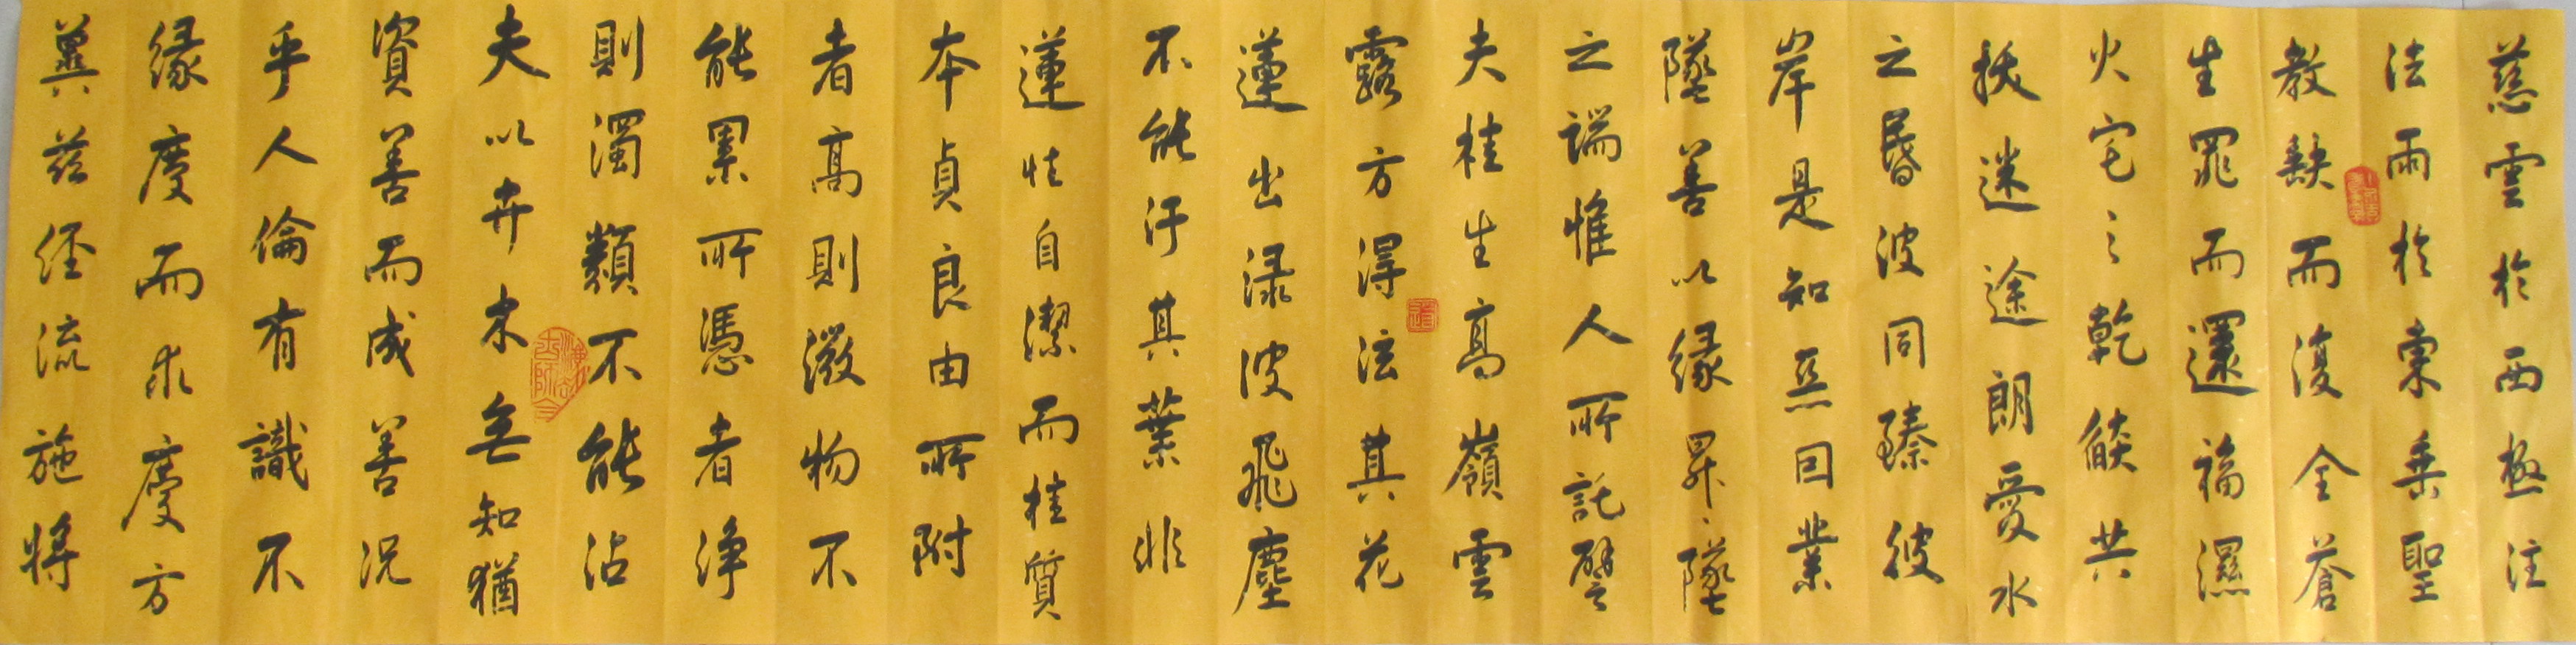 慈雲於西極注
法雨於東垂聖
教缺而復全蒼
生罪而還福濕
火宅之乾燄共
拔迷途朗愛水
之昏波同臻彼
岸是知惡因業
墜善以緣昇、墜
之端惟人所託譬
夫桂生高嶺雲
露方得泫其花
蓮出淥波飛塵
不能汙其葉非
蓮性自潔而桂質
本貞良由所附
者高則微物不
能累所憑者淨
則濁類不能沾
夫以卉木無知猶
資善而成善況
乎人倫有識不
緣慶而求慶方
冀茲經流施將